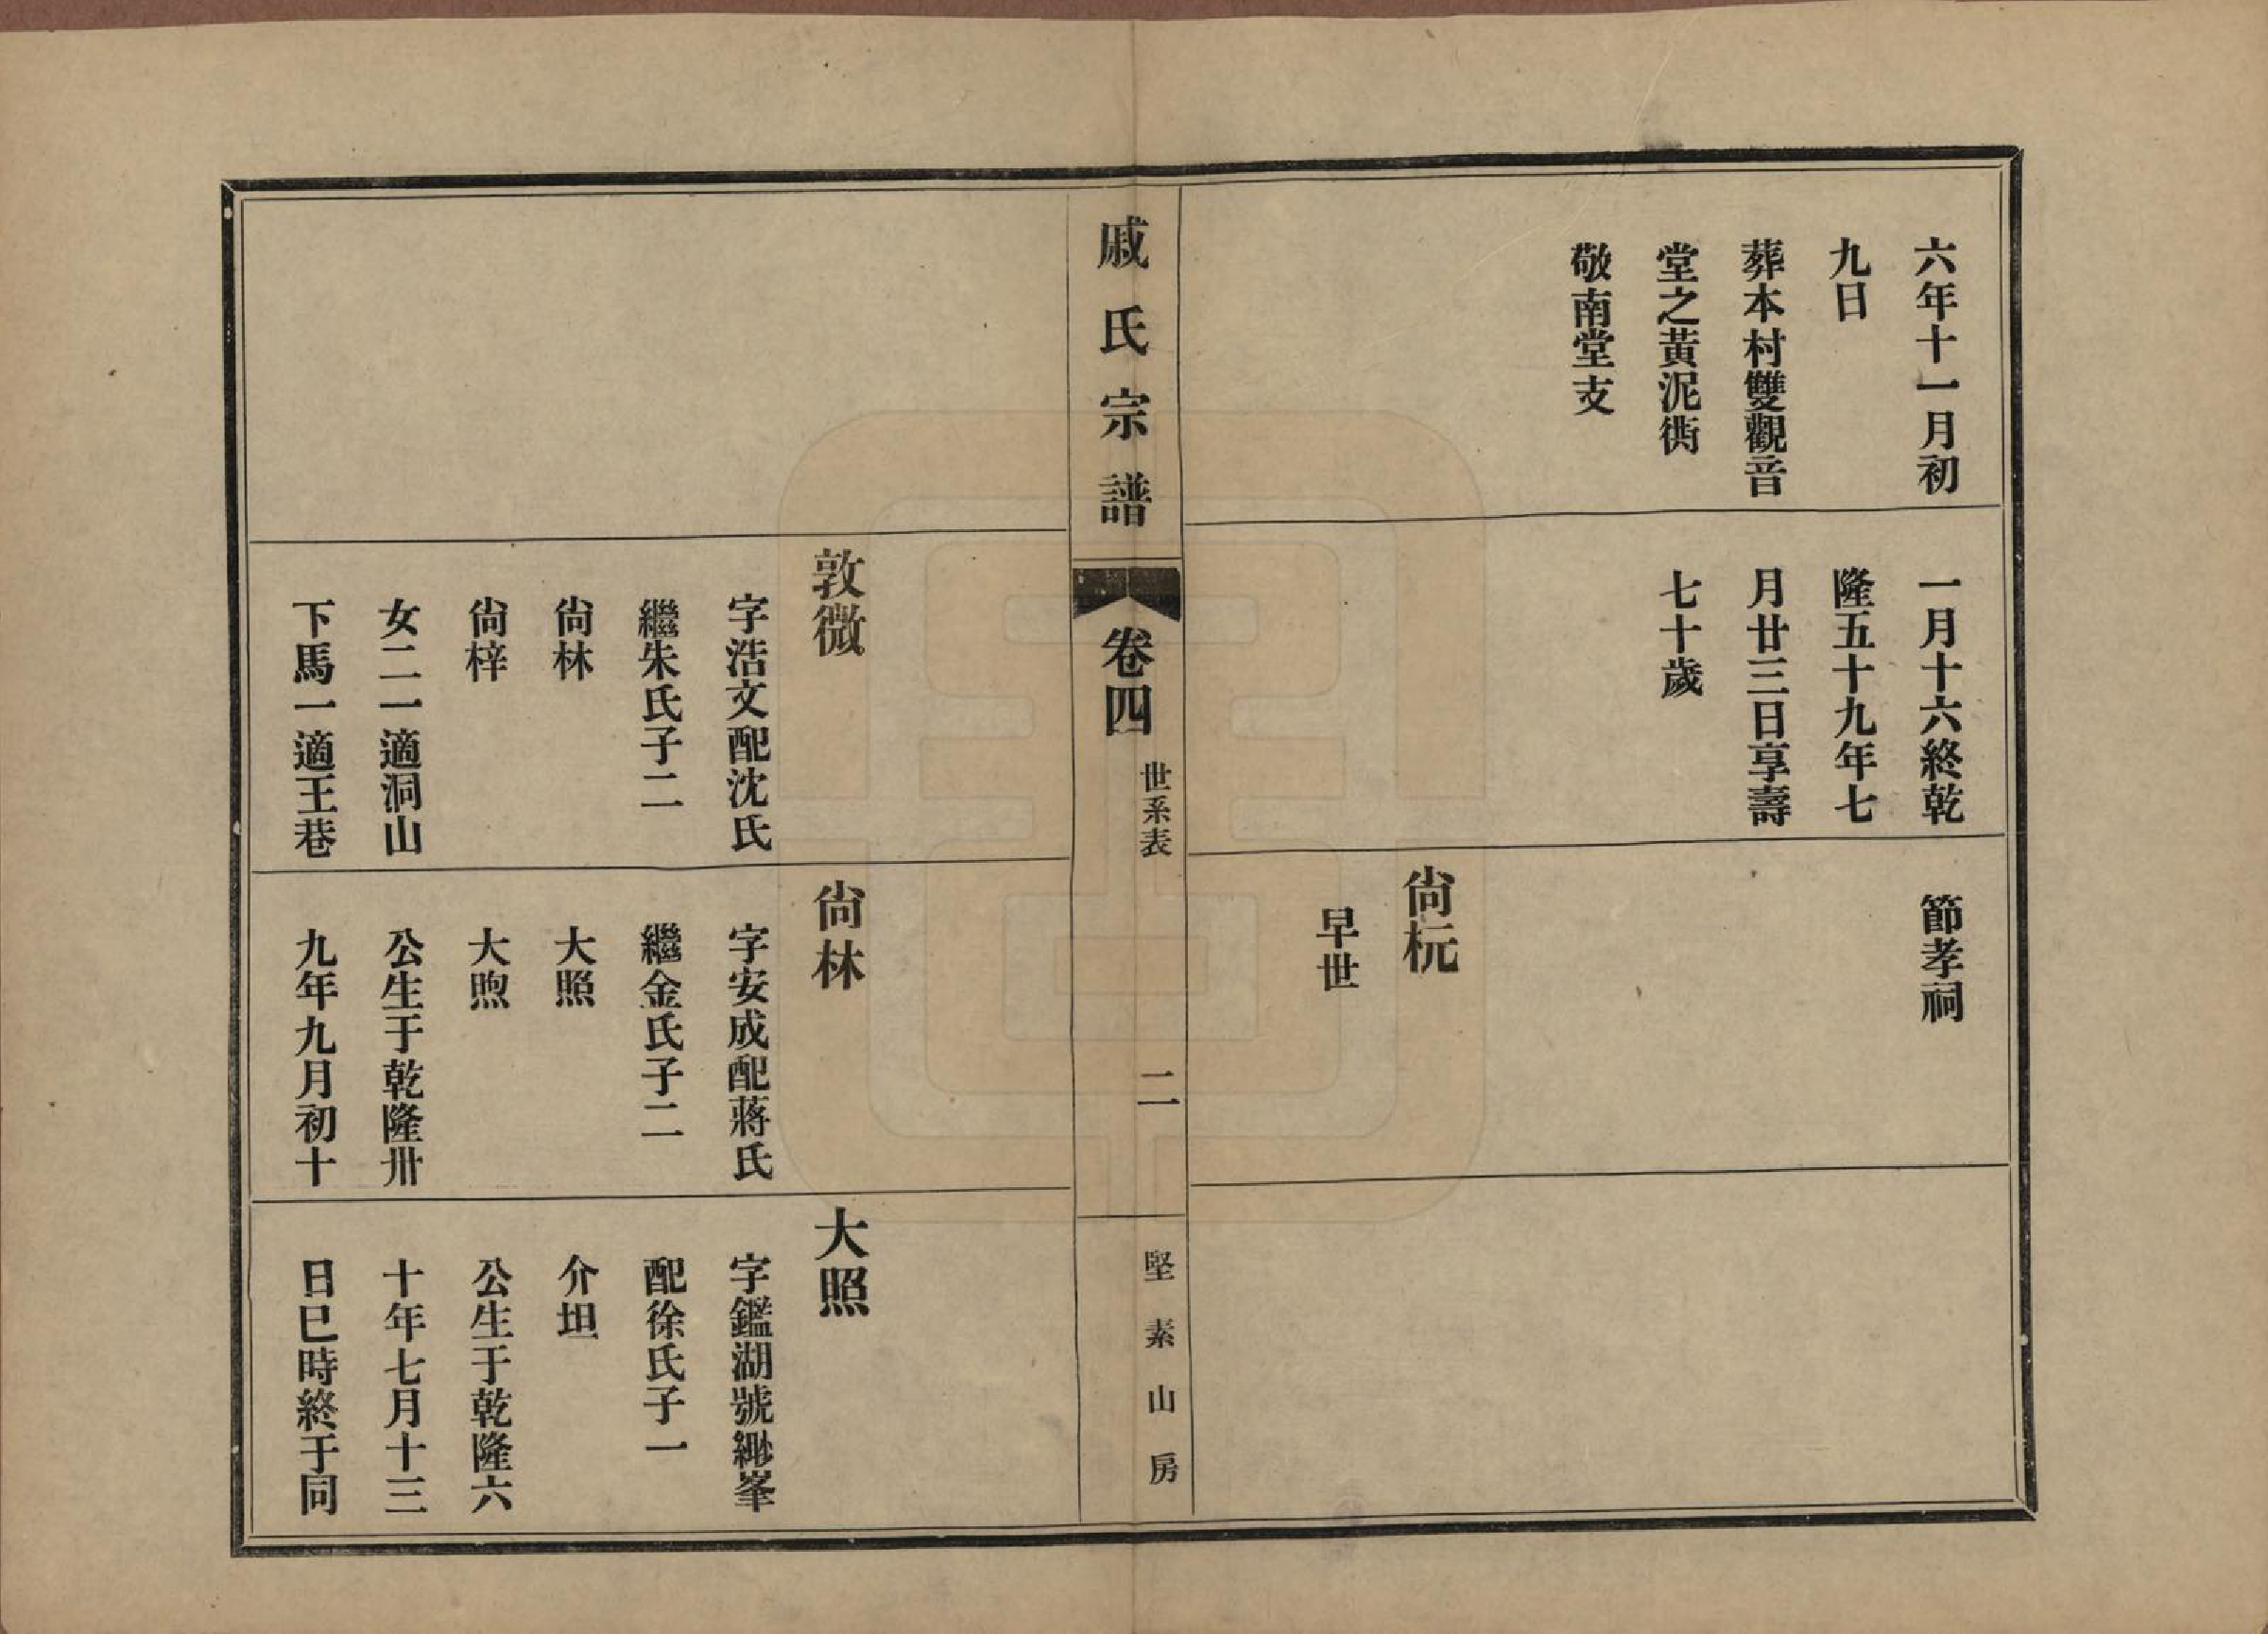 六年十一月初
九日
葬本村雙觀音
堂之黃泥衖
敬南堂支
一月十六終乾
隆五十九年七
月廿三日享壽
七十歲
節孝祠
尙杬
早世
戚氏宗譜
卷四
世系表
二
堅素山房
敦微
字浩文配沈氏
繼朱氏子二
尙林
尙梓
女二一適洞山
下馬一適王巷
尙林
字安成配蔣氏
繼金氏子二
大照
大煦
公生于乾隆卅
九年九月初十
大照
字鑑湖號緲峯
配徐氏子一
介坦
公生于乾隆六
十年七月十三
日巳時終于同